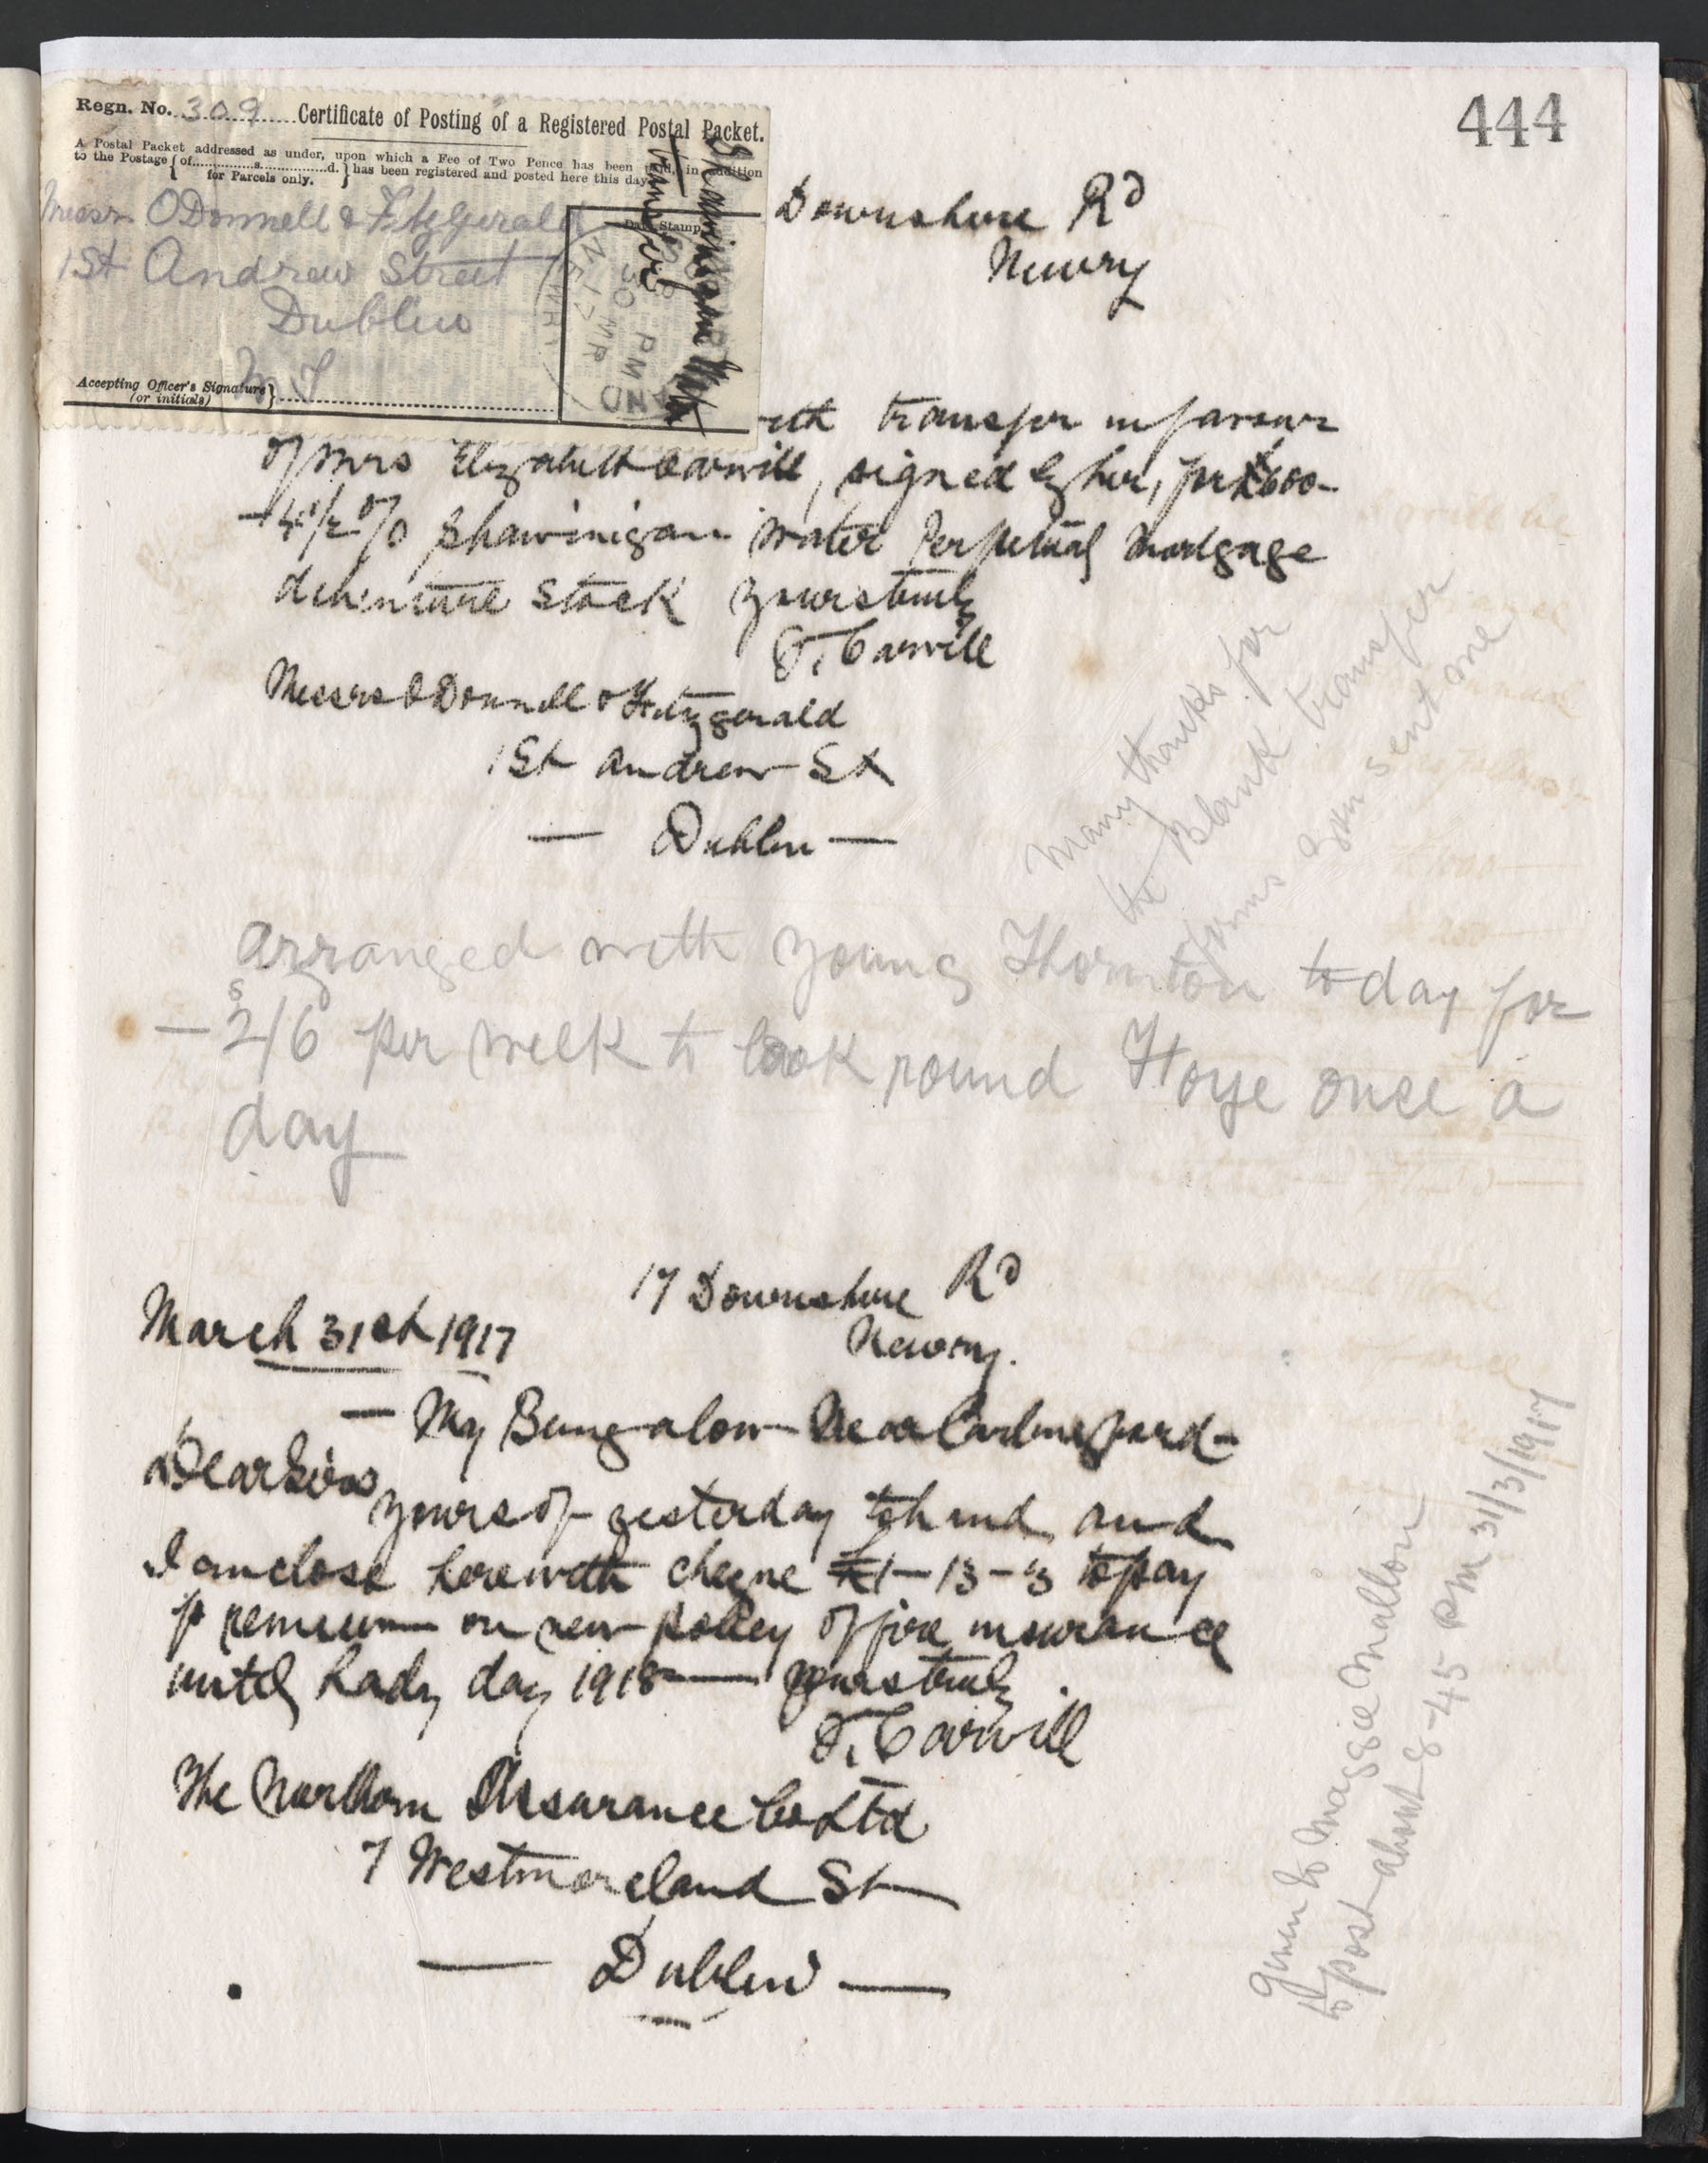 444
Regn. No. 309 Certificate of Posting of a Registered Postal Packet.
A Postal Packet addressed as under, upon which a Fee of Two Pence has been paid, in addition
to the Postage { of............s............d. } has been registered and posted here this day.
for Parcels only.
Messrs O'Donnell & Fitzgerald
1 St Andrew Street
Dublin
Date Stamp
NEWRY
30 MR
17
Accepting Officer's Signature }
(or initials)
Shawinigan Water
transfer
Downshire Rd
Newry
with transfer in favour
of Mrs Elizabeth Carvill, signed by her, for £600-
-4½% Shawinigan Water Perpetual Mortgage
debenture Stock yours truly
F. Carvill
Messrs O'Donnell & Fitzgerald
1 St Andrew St
— Dublin —
Many thanks for
the Blank transfer
forms you sent me
arranged with young Thornton to day for
— 2s/6 per week to look round Horse once a
day
17 Downshire Rd
Newry.
March 31st 1917
— My Bungalow Near Carlingford —
Dear Sirs
yours of yesterday to hand and
I enclose herewith cheque £1-13-3 to pay
premium on new policy of fire insurance
until Lady day 1918 — yours truly
F. Carvill
The Northern Assurance Co Ltd
7 Westmoreland St
— Dublin —
given to Maggie Mallon
to post about 8-45 PM 31/3/1917